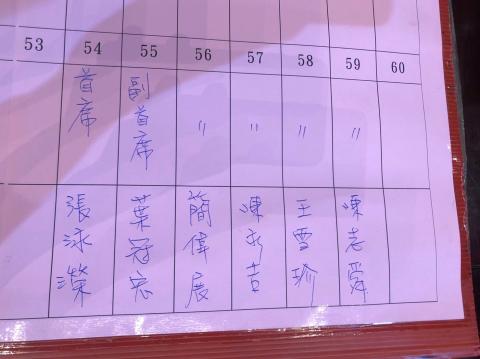 53 54 55 56 57 58 59 60
首席 副首席 〃 〃 〃 〃
張泳瀠 葉冠宏 簡偉展 陳永吉 王雪玠 陳志舜